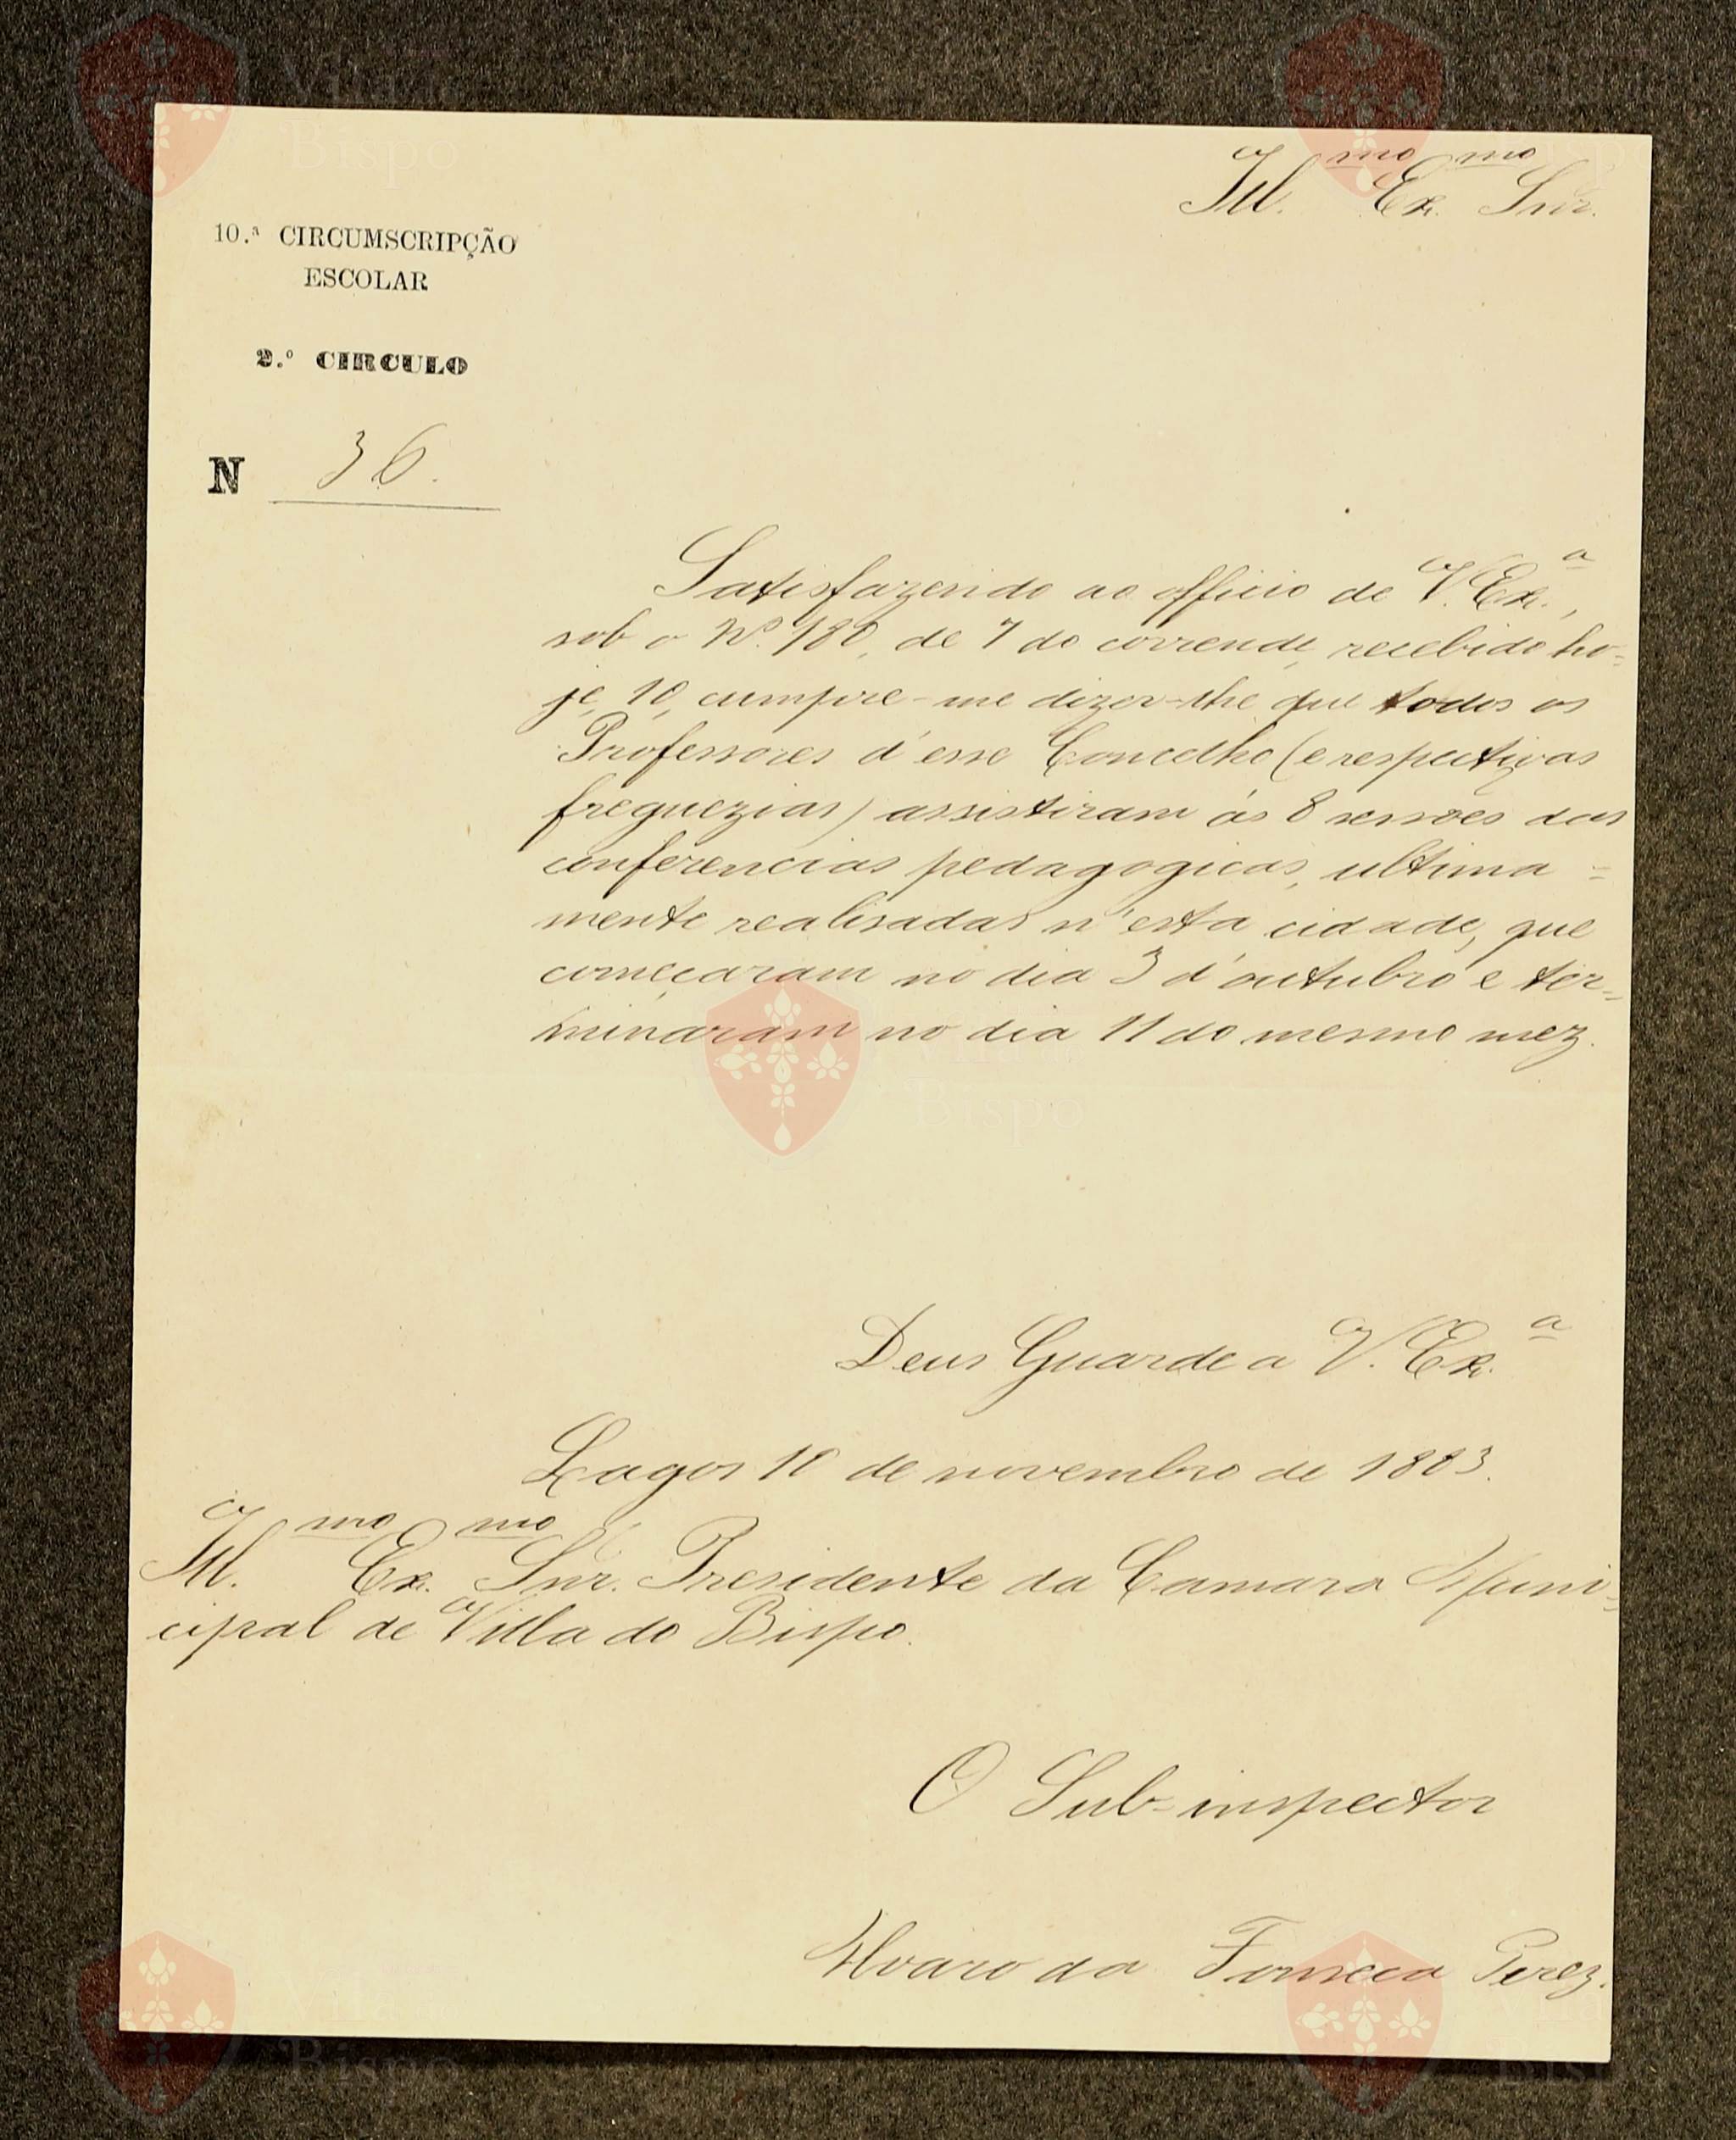 Ill.mo Ex.mo Snr.
10.ª CIRCUMSCRIPÇÃO
ESCOLAR
2.º CIRCULO
N 36.
Satisfazendo ao officio de V. Ex.ª,
sob o Nº. 180, de 7 do corrente, recebido ho-
je, 10, cumpre-me dizer-lhe que todos os
Professores d'esse Concelho (e respectivas
freguezias) assistiram ás 8 sessões das
conferencias pedagogicas, ultima-
mente realisadas n'esta cidade, que
começaram no dia 3 d'outubro e ter-
minaram no dia 11 do mesmo mez.
Deus Guarde a V. Ex.ª
Lagos 10 de novembro de 1883.
Ill.mo Ex.mo Snr. Presidente da Camara Muni-
cipal de Villa do Bispo.
O Sub-inspector
Alvaro da Fonseca Perez.